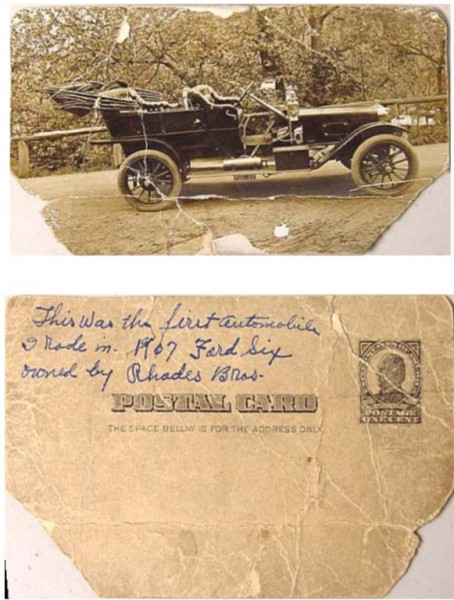 This was the first automobile
I Rode in. 1907 Ford Six
owned by Rhodes Bros.
POSTAL CARD
THE SPACE BELOW IS FOR THE ADDRESS ONLY
POSTAGE
ONE CENT